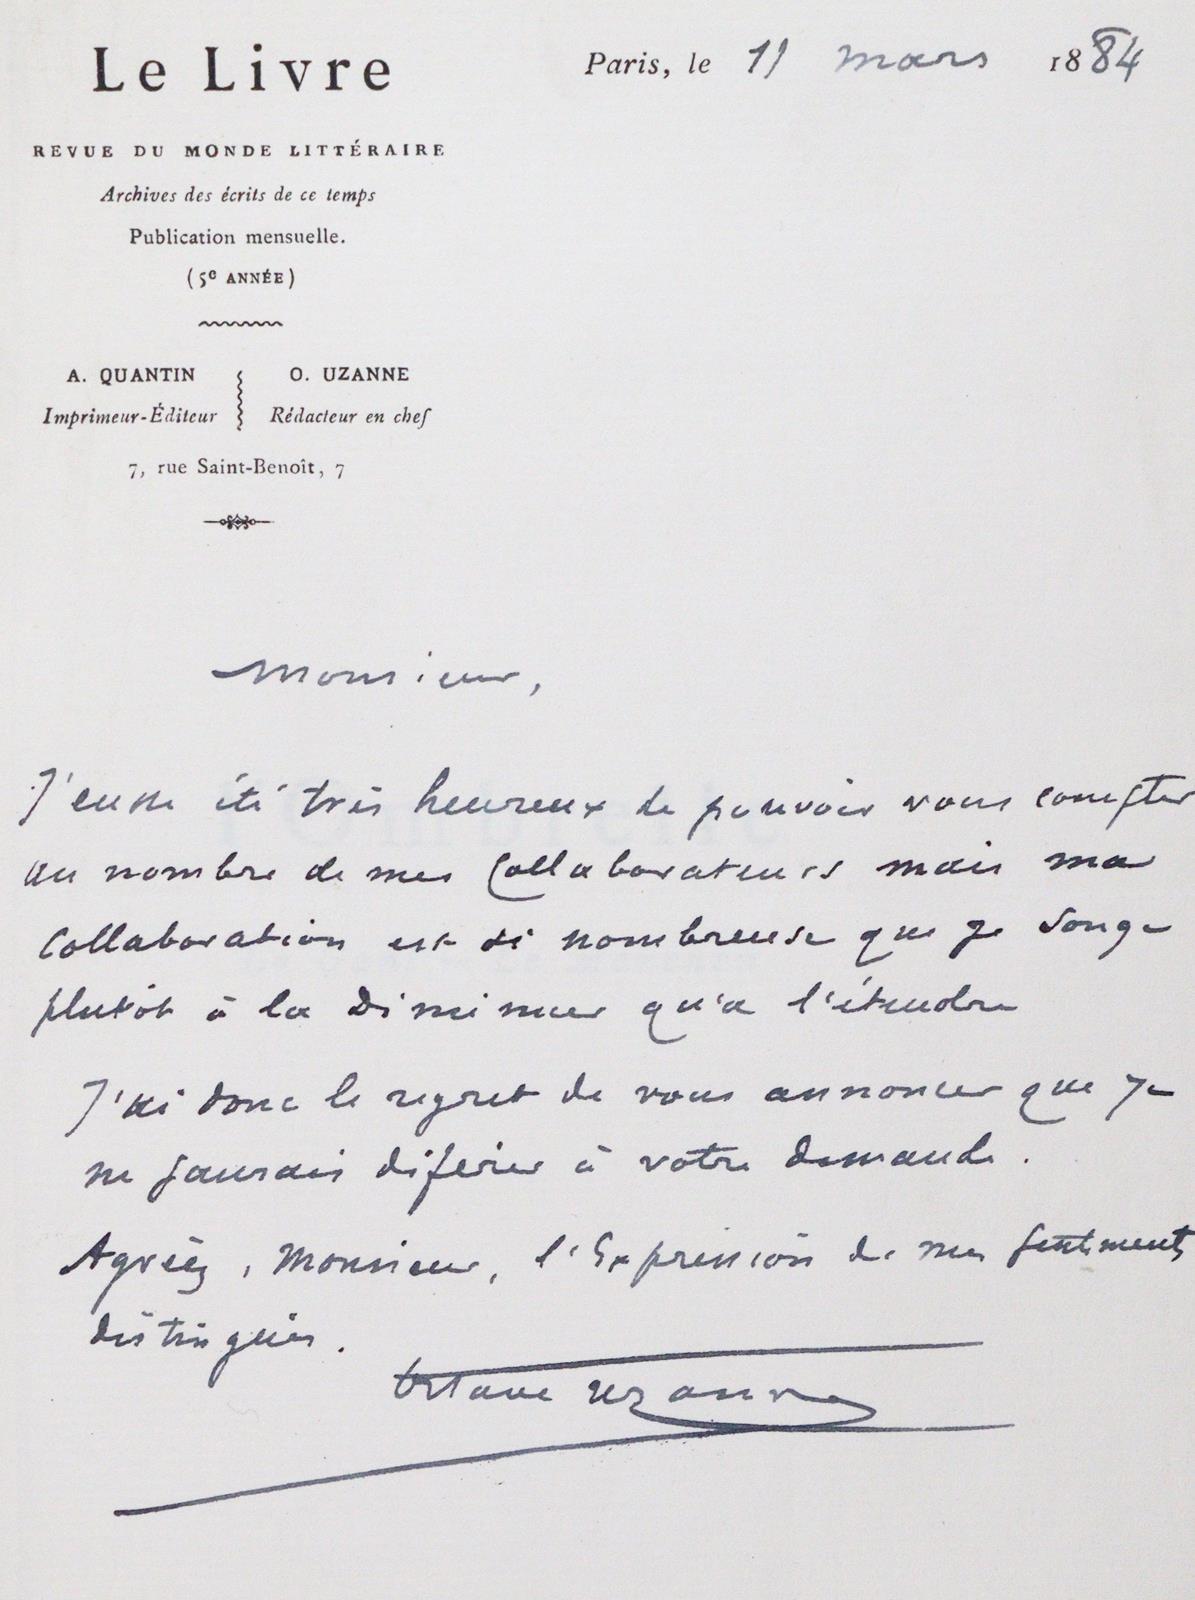 Le Livre
REVUE DU MONDE LITTÉRAIRE
Archives des écrits de ce temps
Publication mensuelle.
(5e ANNÉE)
A. QUANTIN
Imprimeur-Éditeur
O. UZANNE
Rédacteur en chef
7, rue Saint-Benoît, 7
Paris, le 11 mars 1884
Monsieur,
J'eusse été très heureux de pouvoir vous compter
au nombre de mes Collaborateurs mais ma
Collaboration est si nombreuse que je songe
plutôt à la Diminuer qu'a l'étendre
J'ai donc le regret de vous annoncer que je
ne saurais diférer à votre demande.
Agréez, Monsieur, l'Expression de mes sentiments
distingués.
Octave Uzanne